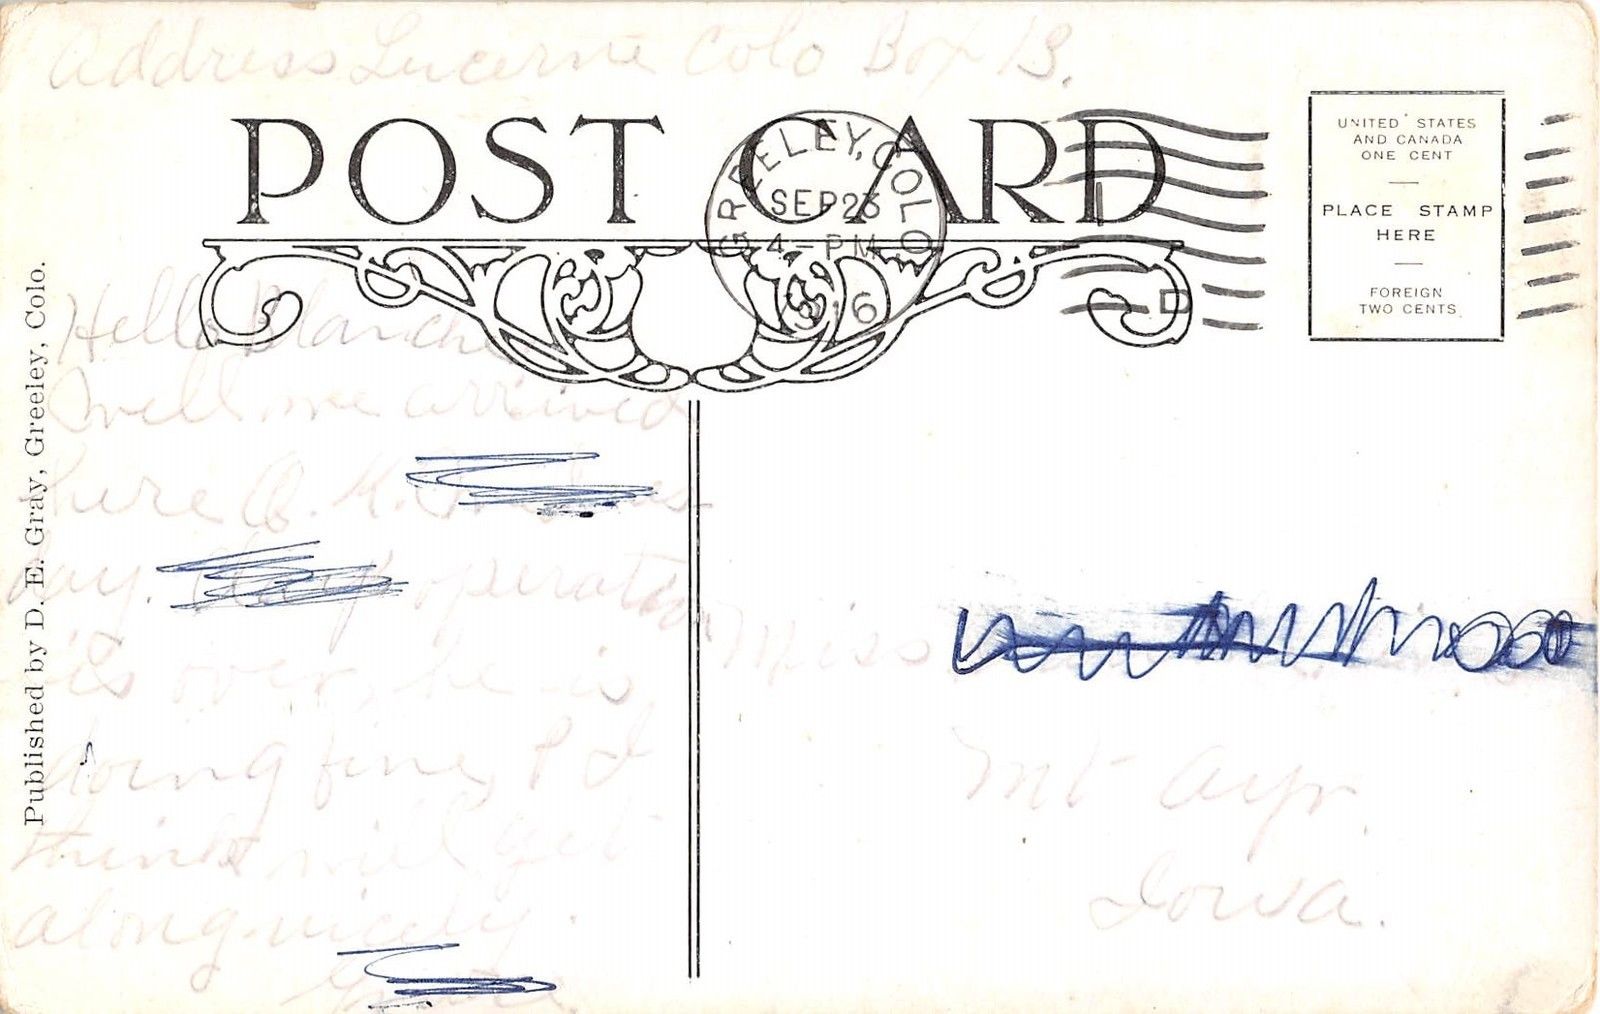 Address Lucerne Colo Box 13.
POST CARD
GREELEY, COLO
SEP 23
4-PM
D
UNITED STATES
AND CANADA
ONE CENT
PLACE STAMP
HERE
FOREIGN
TWO CENTS
Published by D. E. Gray, Greeley, Colo.
Hello Blanche
Well we arrived
here O. K.
day. operation
is over, he is
doing fine, & I
think will get
along nicely.
Miss
Mt Ayr.
Iowa.